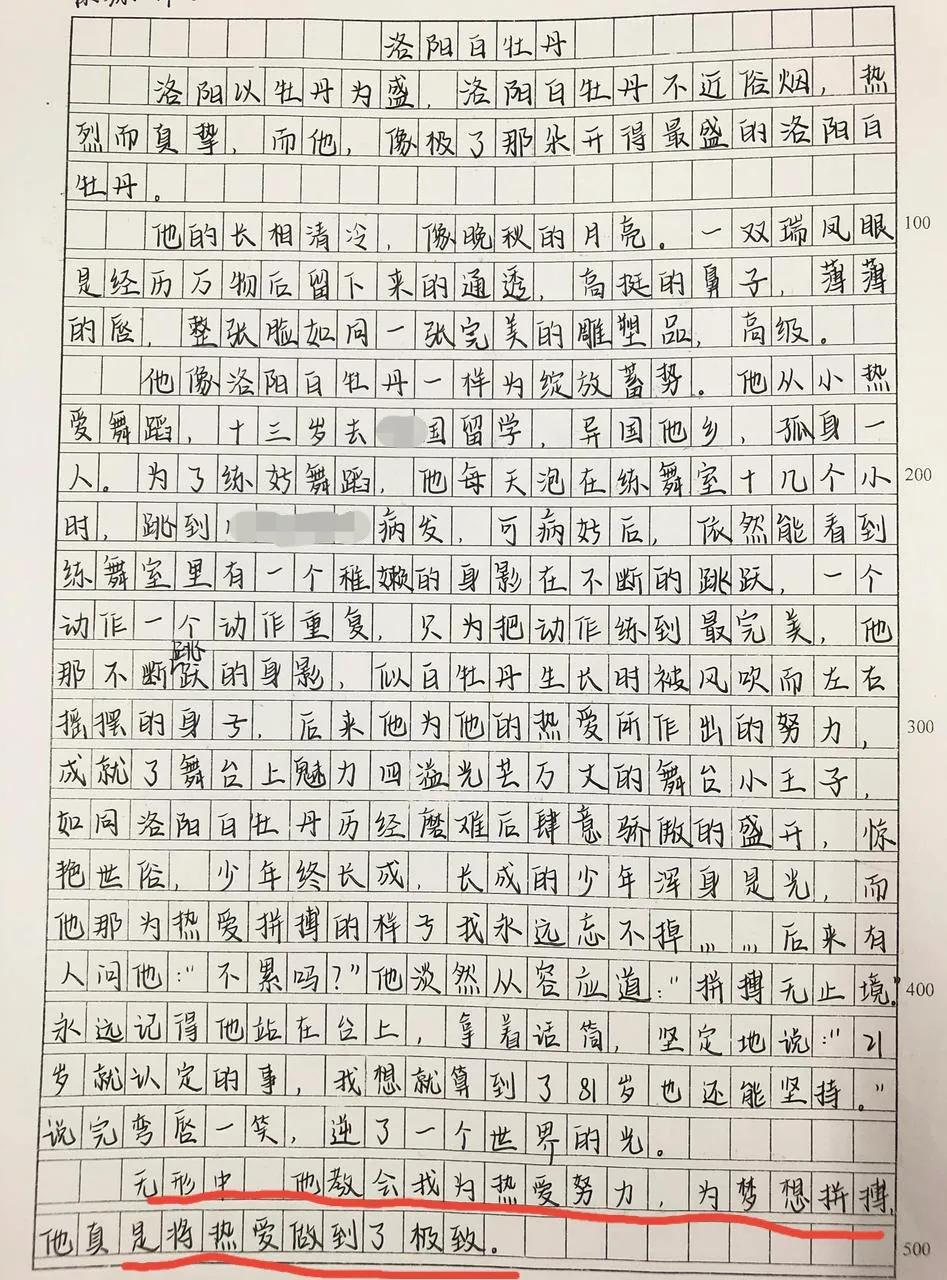 洛阳白牡丹
洛阳以牡丹为盛，洛阳白牡丹不近俗烟，热
烈而真挚，而他，像极了那朵开得最盛的洛阳白
牡丹。
他的长相清冷，像晚秋的月亮。一双瑞凤眼
100
是经历万物后留下来的通透，高挺的鼻子，薄薄
的唇，整张脸如同一张完美的雕塑品，高级。
他像洛阳白牡丹一样为绽放蓄势。他从小热
爱舞蹈，十三岁去国留学，异国他乡，孤身一
人。为了练好舞蹈，他每天泡在练舞室十几个小
200
时，跳到病发，可病好后，依然能看到
练舞室里有一个稚嫩的身影在不断的跳跃，一个
动作一个动作重复，只为把动作练到最完美，他
那不断跳跃的身影，似白牡丹生长时被风吹而左右
摇摆的身子，后来他为他的热爱所作出的努力，
300
成就了舞台上魅力四溢光芒万丈的舞台小王子，
如同洛阳白牡丹历经磨难后肆意骄傲的盛开，惊
艳世俗，少年终长成，长成的少年浑身是光，而
他那为热爱拼搏的样子我永远忘不掉……后来有
人问他：“不累吗？”他淡然从容应道：“拼搏无止境。”
400
永远记得他站在台上，拿着话筒，坚定地说：“21
岁就认定的事，我想就算到了81岁也还能坚持。”
说完弯唇一笑，逆了一个世界的光。
无形中 他教会我为热爱努力，为梦想拼搏，
他真是将热爱做到了极致。
500